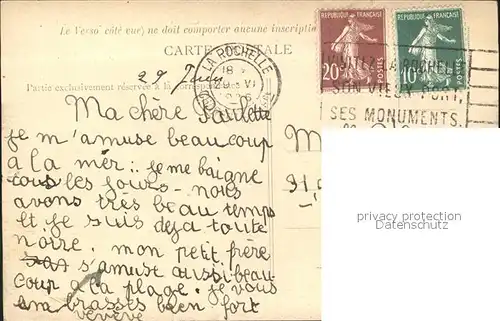 Le Verso côté vue; ne doit comporter aucune inscriptio
CARTE POSTALE
29 Juin
Partie exclusivement réservée à la correspondance
LA ROCHELLE
18
29 VI
REPUBLIQUE FRANÇAISE
20c
POSTES
REPUBLIQUE FRANÇAISE
10c
POSTES
VISITEZ LA ROCHELLE
SON VIEUX PORT,
SES MONUMENTS.
Ma chère Paulette
je m'amuse beaucoup
a la mer: je me baigne
tous les jours - nous
avons très beau temps
et je suis deja toute
noire. mon petit frère
s'amuse aussi beau
coup a la plage. je vous
embrasses bien fort
veveve
M
31
privacy protection
Datenschutz